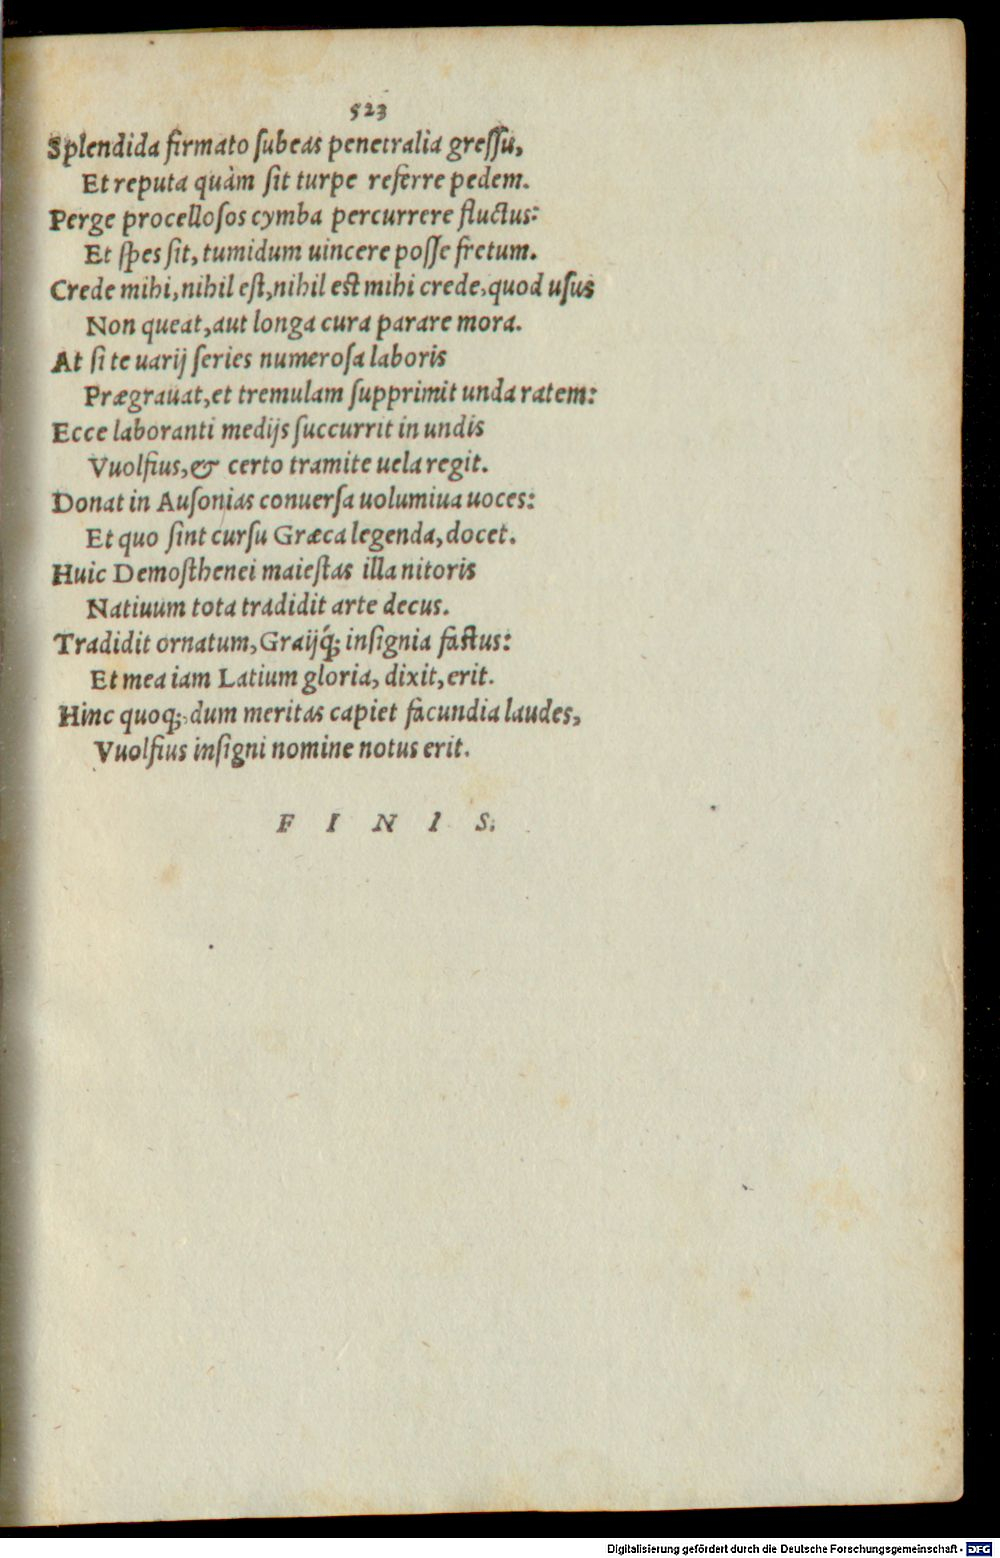 523
Splendida firmato ſubeas penetralia greſſu,
Et reputa quàm ſit turpe referre pedem.
Perge procelloſos cymba percurrere fluctus:
Et ſpes ſit, tumidum uincere poſſe fretum.
Crede mihi, nihil eſt, nihil eſt mihi crede, quod uſus
Non queat, aut longa cura parare mora.
At ſi te uarij ſeries numeroſa laboris
Prægrauat, et tremulam ſupprimit unda ratem:
Ecce laboranti medijs ſuccurrit in undis
Vuolfius, & certo tramite uela regit.
Donat in Auſonias conuerſa uolumiua uoces:
Et quo ſint curſu Græca legenda, docet.
Huic Demoſthenei maieſtas illa nitoris
Natiuum tota tradidit arte decus.
Tradidit ornatum, Graijq́; inſignia faſtus:
Et mea iam Latium gloria, dixit, erit.
Hinc quoq;, dum meritas capiet facundia laudes,
Vuolfius inſigni nomine notus erit.
F I N I S.
Digitalisierung gefördert durch die Deutsche Forschungsgemeinschaft - DFG